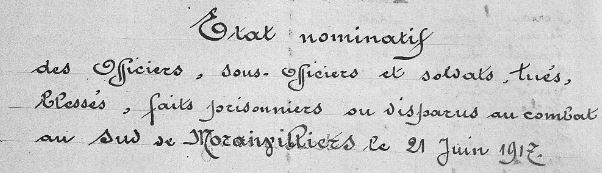 Etat nominatif
des Officiers, sous-officiers et soldats, tués,
blessés, faits prisonniers ou disparus au combat
au Sud de Moranvilliers le 21 Juin 1917.